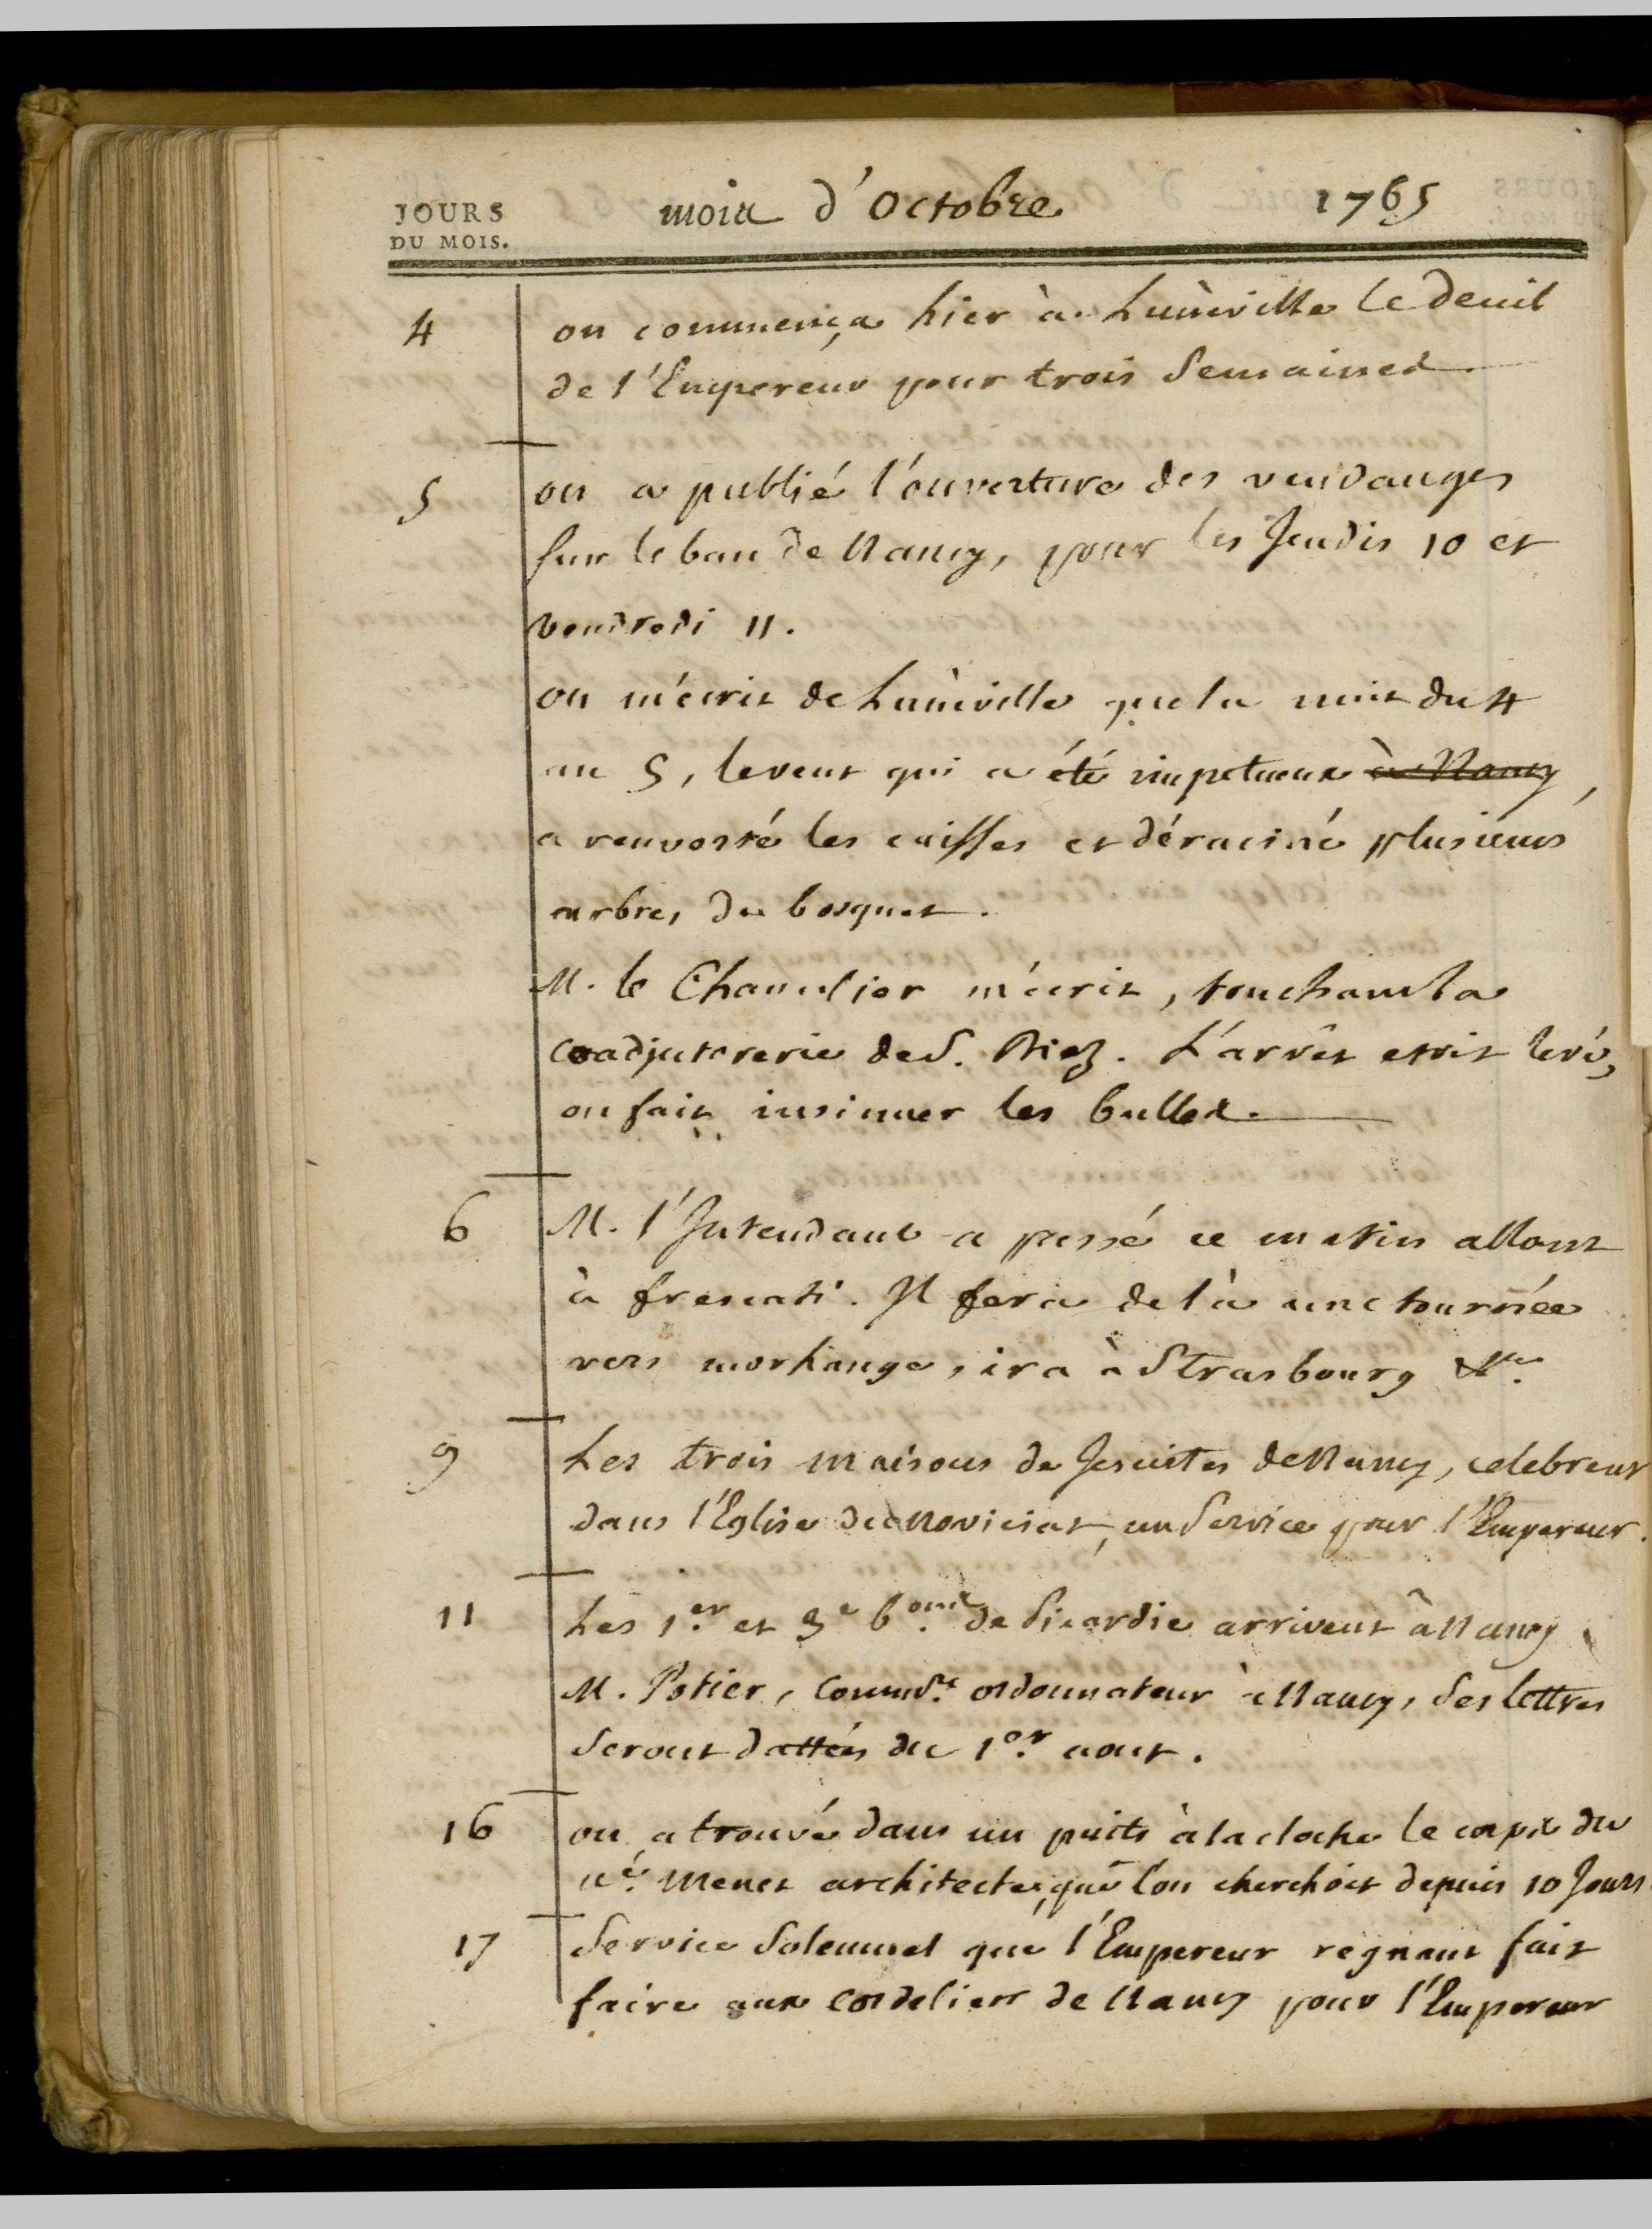 JOURS
DU MOIS.
mois d'Octobre 1765
4 on commença hier à Lunéville le deuil
de l'Empereur pour trois Semaines
5 on a publié l'ouverture des vendanges
sur le ban de Nancy, pour les Jeudis 10 et
vendredi 11.
on m'écrit de Lunéville que la nuit du 4
au 5, le vent qui a été impetueux à Nancy,
a renversé les caisses et déraciné plusieurs
arbres du bosquet.
M. le Chancelier m'écrit, touchant la
Coadjutorerie de S. Diez. L'arrêt etoit levé,
on fait insinuer les bulles.
6 M. l'Intendant a passé ce matin allant
à frescati. Il fera de là une tournée
vers morhange, ira à Strasbourg &c.
9 Les trois maisons de Jesuites de Nancy, celebrent
dans l'Eglise du Noviciat, un Service pour l'Empereur.
11 Les 1.er et 3e b.ons de Picardie arrivent à Nancy
M. Potier, Comm.re ordonnateur à Nancy, ses lettres
seront dattées du 1.er aout.
16 on a trouvé dans un puits à la cloche le corps du
né. Menet architecte, que l'on cherchoit depuis 10 Jours
17 Service Solemnel que l'Empereur regnant fait
faire aux Cordeliers de Nancy pour l'Empereur